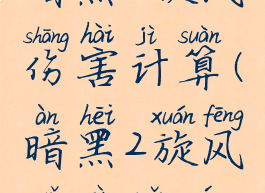 shāng hài jì suàn
伤害计算(
àn hēi xuán fēng
暗黑2旋风